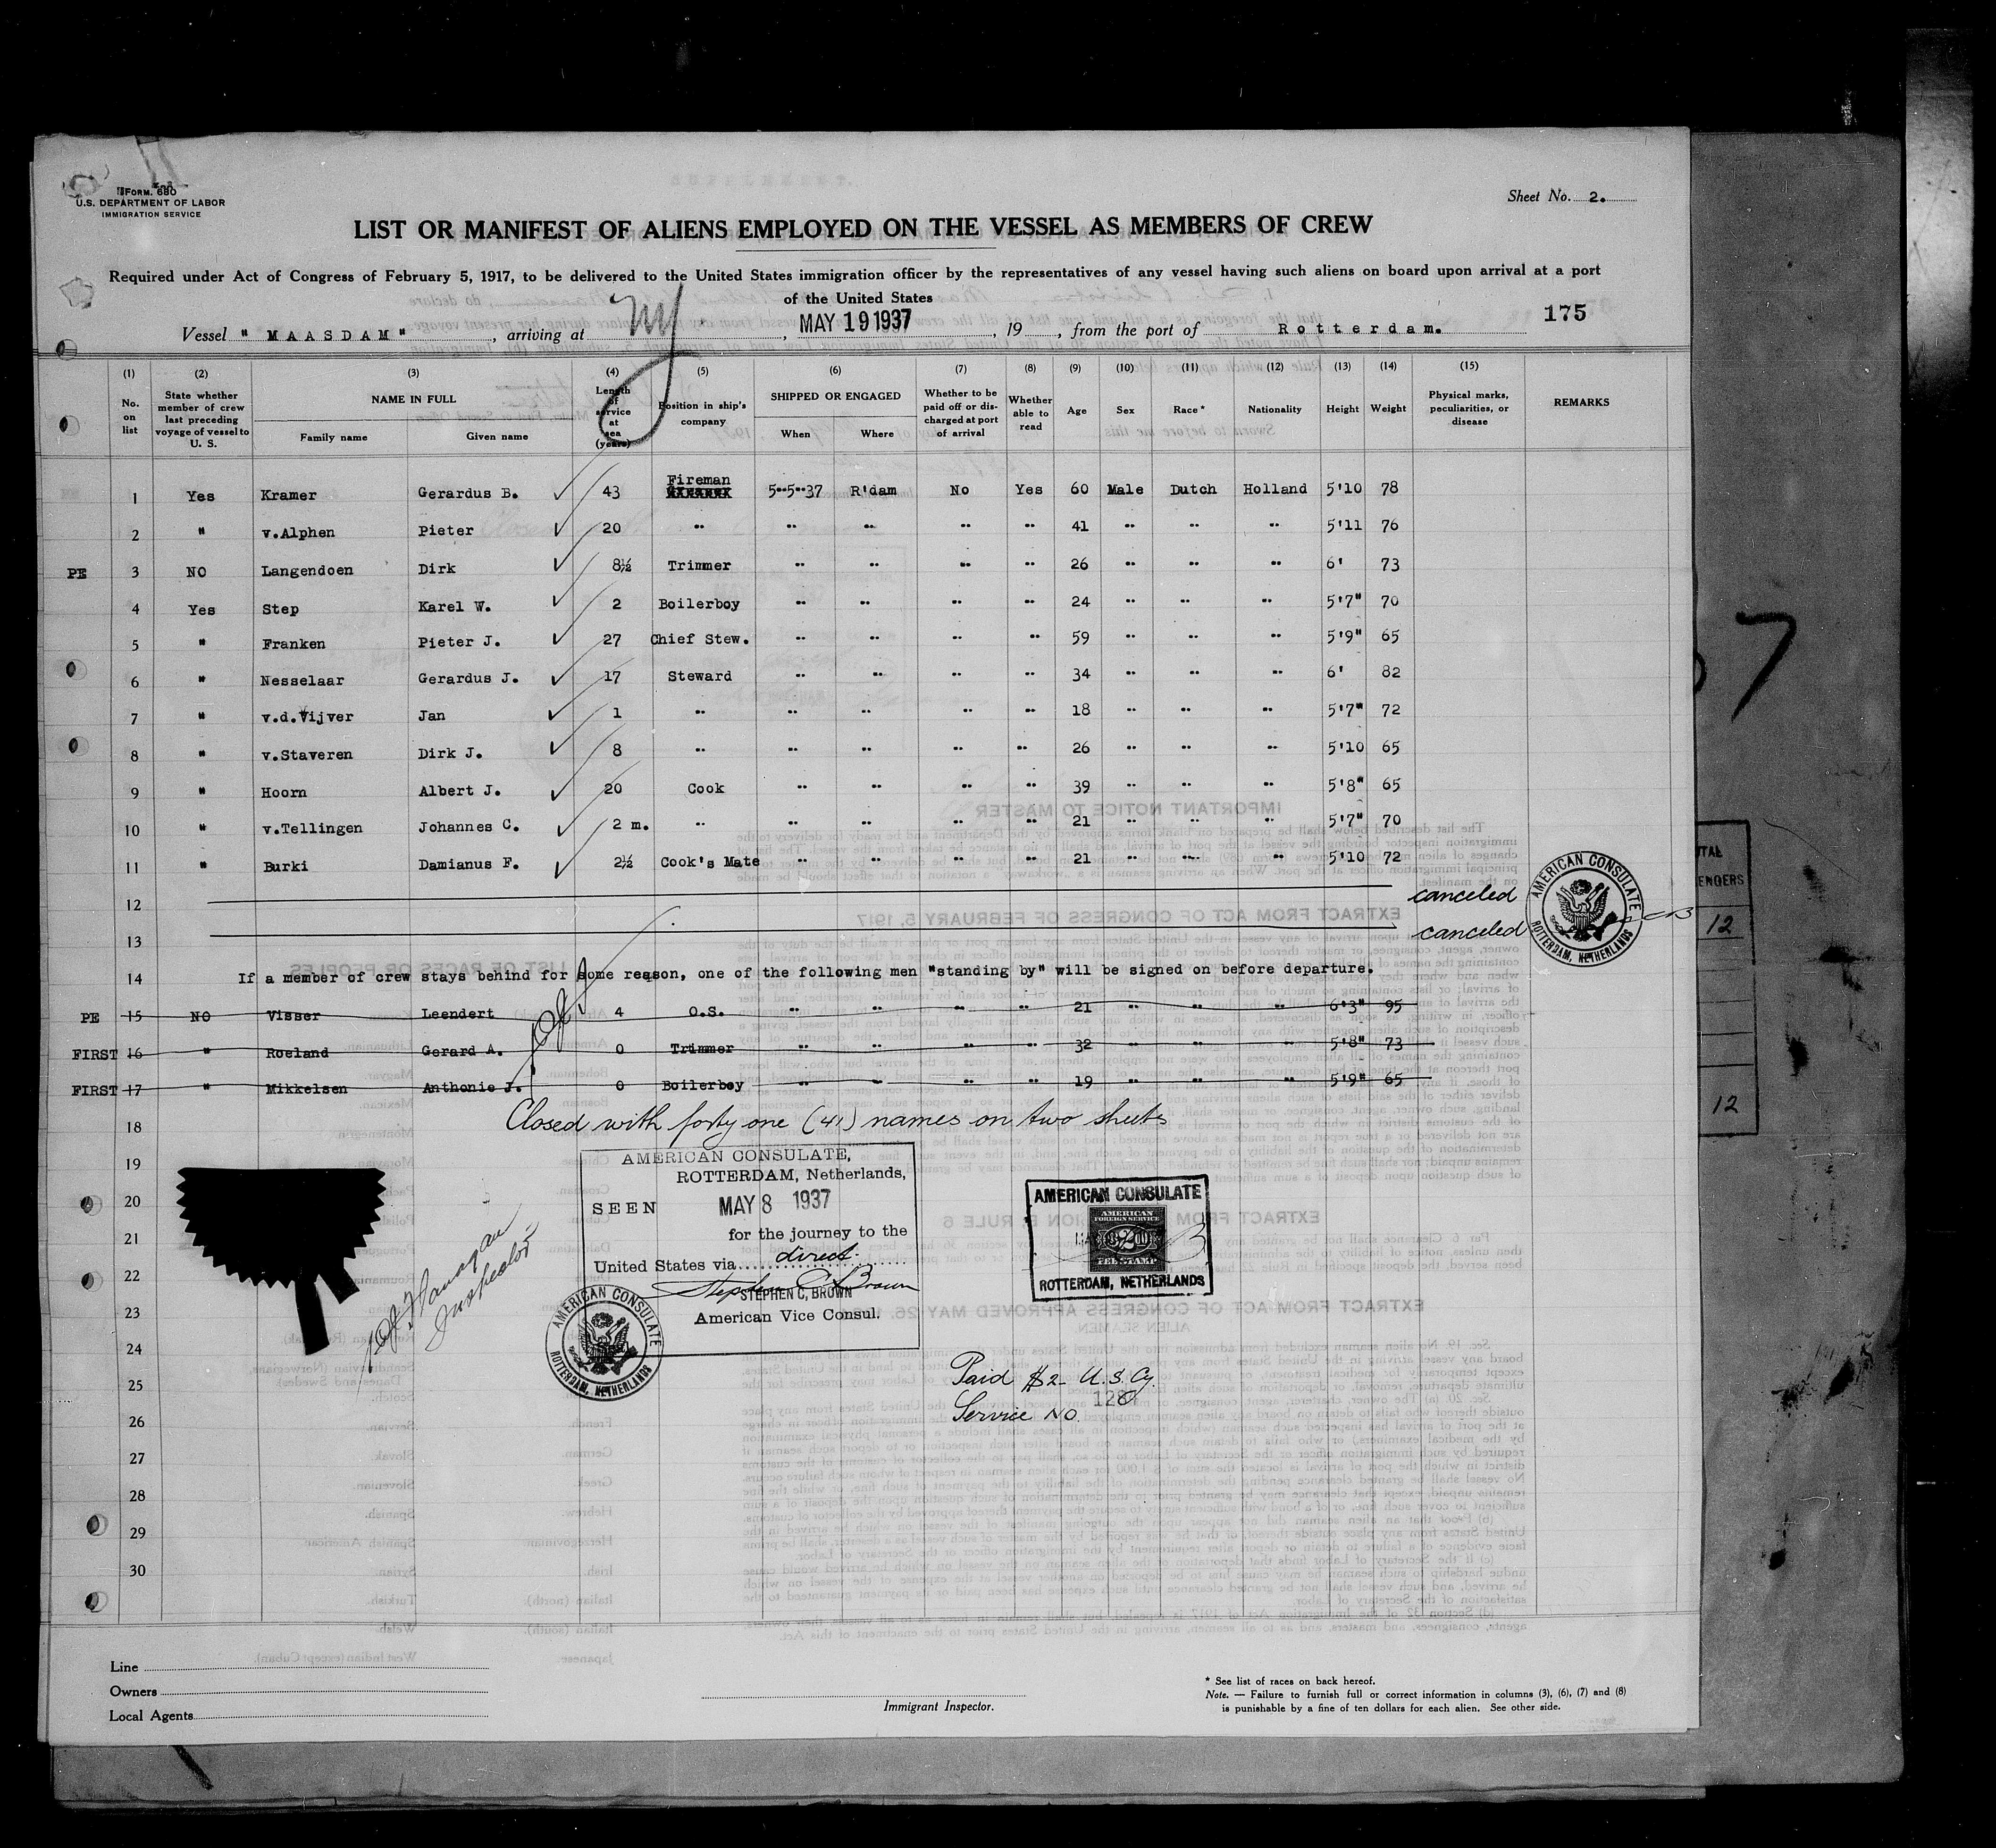 FORM. 680
U.S. DEPARTMENT OF LABOR
IMMIGRATION SERVICE
Sheet No. 2.
LIST OR MANIFEST OF ALIENS EMPLOYED ON THE VESSEL AS MEMBERS OF CREW
Required under Act of Congress of February 5, 1917, to be delivered to the United States immigration officer by the representatives of any vessel having such aliens on board upon arrival at a port
of the United States
175
Vessel " MAASDAM " , arriving at NY , MAY 19 1937 , 19 , from the port of Rotterdam.
(1) (2) (3) (4) (5) (6) (7) (8) (9) (10) (11) (12) (13) (14) (15)
No. on list
State whether member of crew last preceding voyage of vessel to U. S.
NAME IN FULL
Family name Given name
Length of service at sea (years)
Position in ship's company
SHIPPED OR ENGAGED
When Where
Whether to be paid off or discharged at port of arrival
Whether able to read
Age
Sex
Race *
Nationality
Height
Weight
Physical marks, peculiarities, or disease
REMARKS
1 Yes Kramer Gerardus B. 43 Fireman 5-5-37 R'dam No Yes 60 Male Dutch Holland 5'10 78
2 " v.Alphen Pieter 20 " " " " " 41 " " " 5'11 76
PE 3 NO Langendoen Dirk 8½ Trimmer " " " " 26 " " " 6' 73
4 Yes Step Karel W. 2 Boilerboy " " " " 24 " " " 5'7" 70
5 " Franken Pieter J. 27 Chief Stew. " " " " 59 " " " 5'9" 65
6 " Nesselaar Gerardus J. 17 Steward " " " " 34 " " " 6' 82
7 " v.d.Vijver Jan 1 " " " " " 18 " " " 5'7" 72
8 " v.Staveren Dirk J. 8 " " " " " 26 " " " 5'10 65
9 " Hoorn Albert J. 20 Cook " " " " 39 " " " 5'8" 65
10 " v.Tellingen Johannes C. 2 m. " " " " " 21 " " " 5'7" 70
11 " Burki Damianus F. 2½ Cook's Mate " " " " 21 " " " 5'10 72
12 canceled
13 canceled
AMERICAN CONSULATE
ROTTERDAM, NETHERLANDS
14 If a member of crew stays behind for some reason, one of the following men "standing by" will be signed on before departure.
PE 15 NO Visser Leendert 4 O.S. " " " " 21 " " " 6'3" 95
FIRST 16 " Roeland Gerard A. 0 Trimmer " " " " 32 " " " 5'8" 73
FIRST 17 " Mikkelsen Anthonie J. 0 Boilerboy " " " " 19 " " " 5'9" 65
18 Closed with forty one (41) names on two sheets
19
20
21
22
23
24
25
26
27
28
29
30
AMERICAN CONSULATE,
ROTTERDAM, Netherlands,
SEEN MAY 8 1937
for the journey to the
United States via direct.
STEPHEN C. BROWN
American Vice Consul.
AMERICAN CONSULATE
ROTTERDAM, NETHERLANDS
AMERICAN CONSULATE
AMERICAN
FOREIGN SERVICE
FEE STAMP
ROTTERDAM, NETHERLANDS
Inspector
Paid $2- U.S. Cy.
Service No.
Line
Owners
Local Agents
Immigrant Inspector.
* See list of races on back hereof.
Note. — Failure to furnish full or correct information in columns (3), (6), (7) and (8)
is punishable by a fine of ten dollars for each alien. See other side.
7
12
12